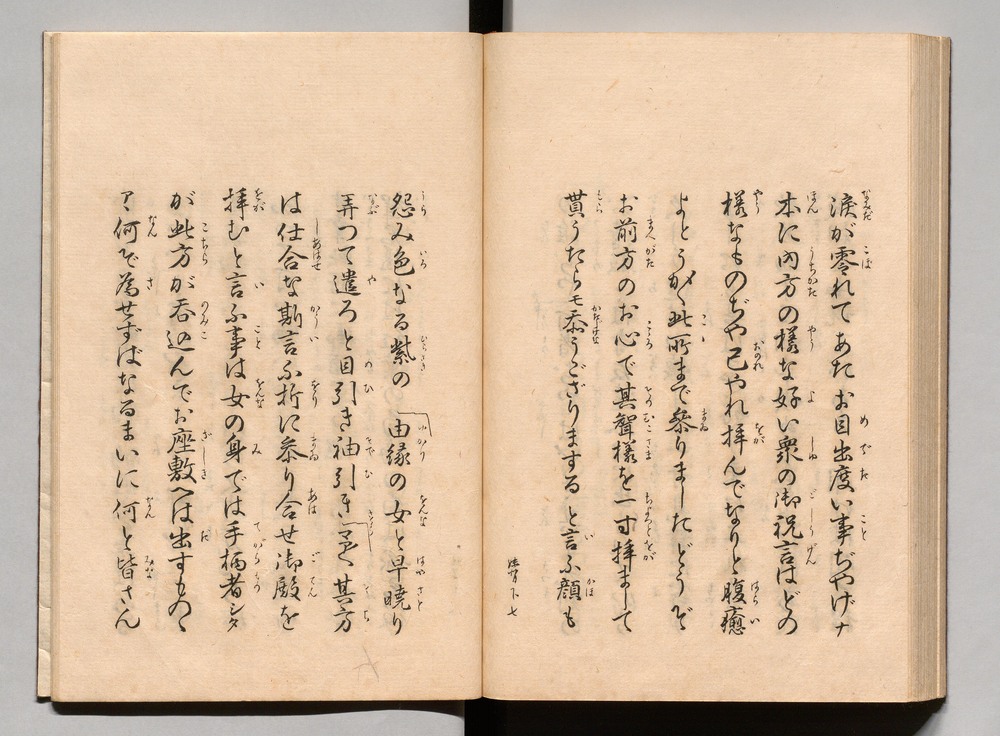 涙が零れてあたお目出度い事ぢやげナ
本に内方の様な好い衆の御祝言はどの
様なものぢや己やれ拝んでなりと腹癒
よとうか〱此所まで参りましたどうぞ
お前方のお心で其聟様を一寸拝まして
貰うたらモ忝うござりますると言ふ顔も
怨み色なる紫の由縁の女と早暁り
弄つて遣ろと目引き袖引き其方
は仕合な斯言ふ折に参り合せ御殿を
拝むと言ふ事は女の身では手柄者シタ
が此方が呑込んでお座敷へは出すものゝ
アヽ何で為せずばなるまいに何と皆さん